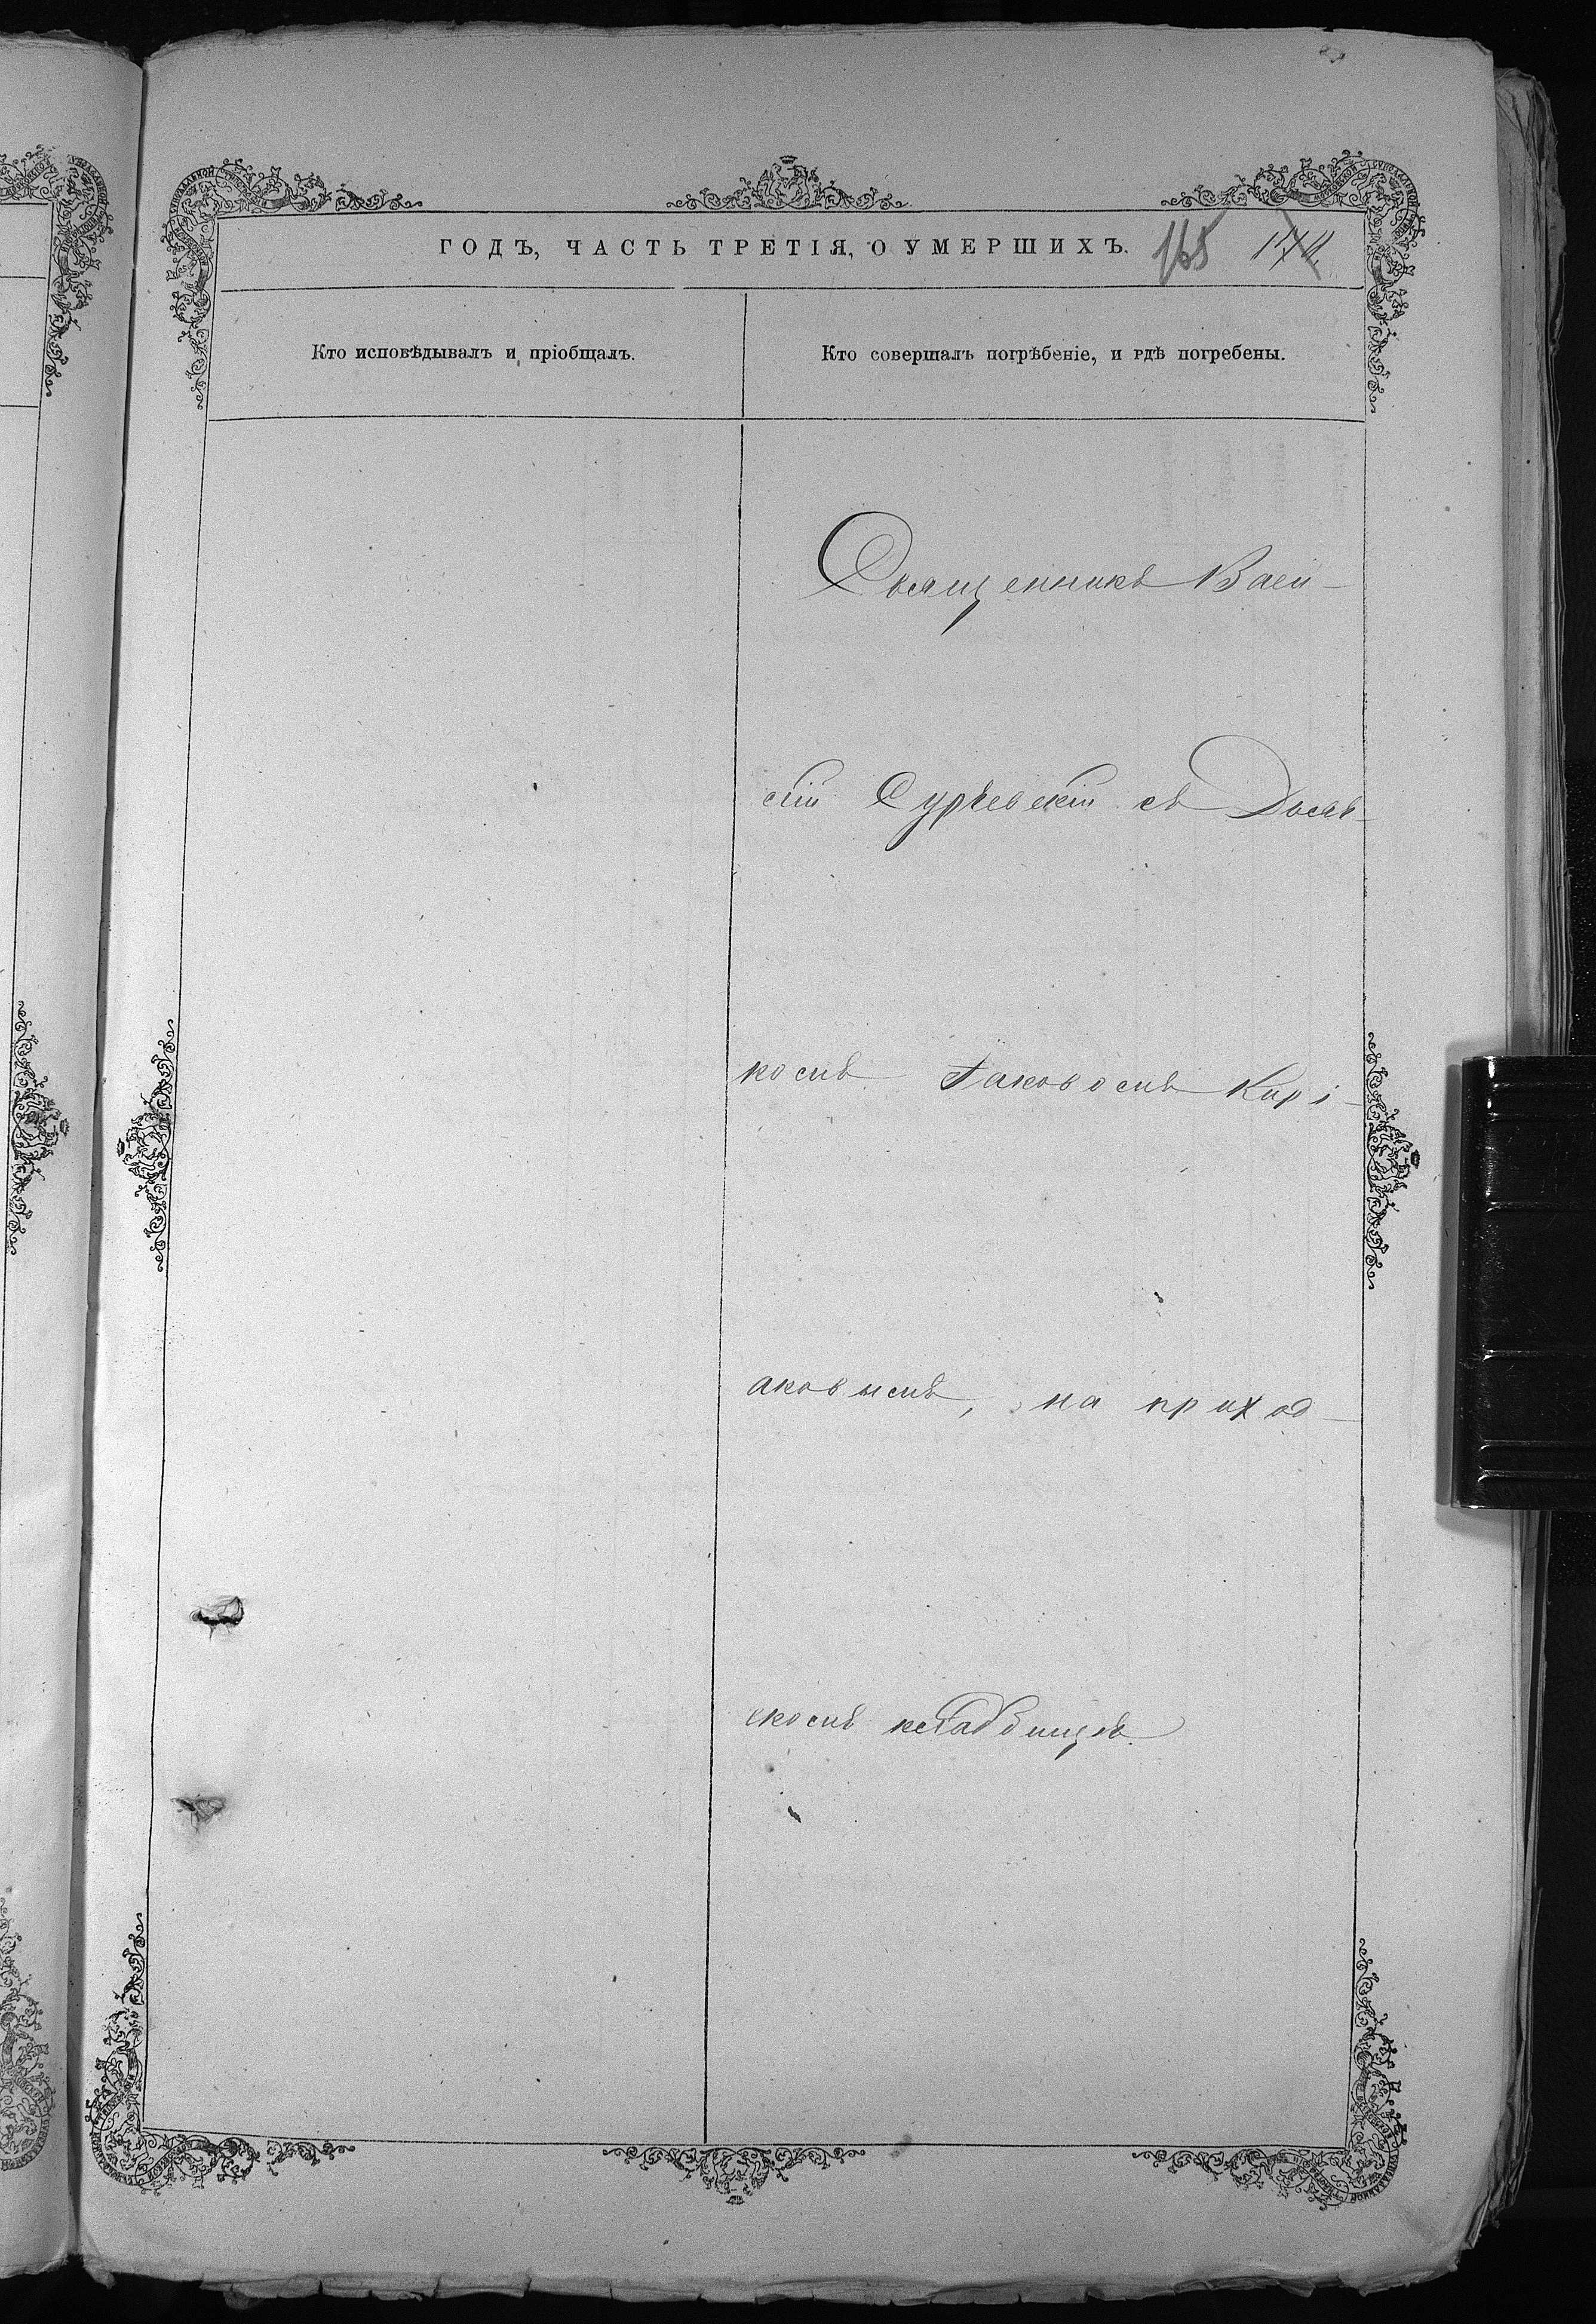 ГОДЪ, ЧАСТЬ ТРЕТІЯ, О УМЕРШИХЪ. 165
Кто исповѣдывалъ и пріобщалъ.
Кто совершалъ погрѣбеніе, и гдѣ погребены.
Священникъ Васи-
лій Суревскій съ Дьяч-
комъ Іаковомъ Кирі-
аковымъ, на приход-
скомъ кладбищѣ.